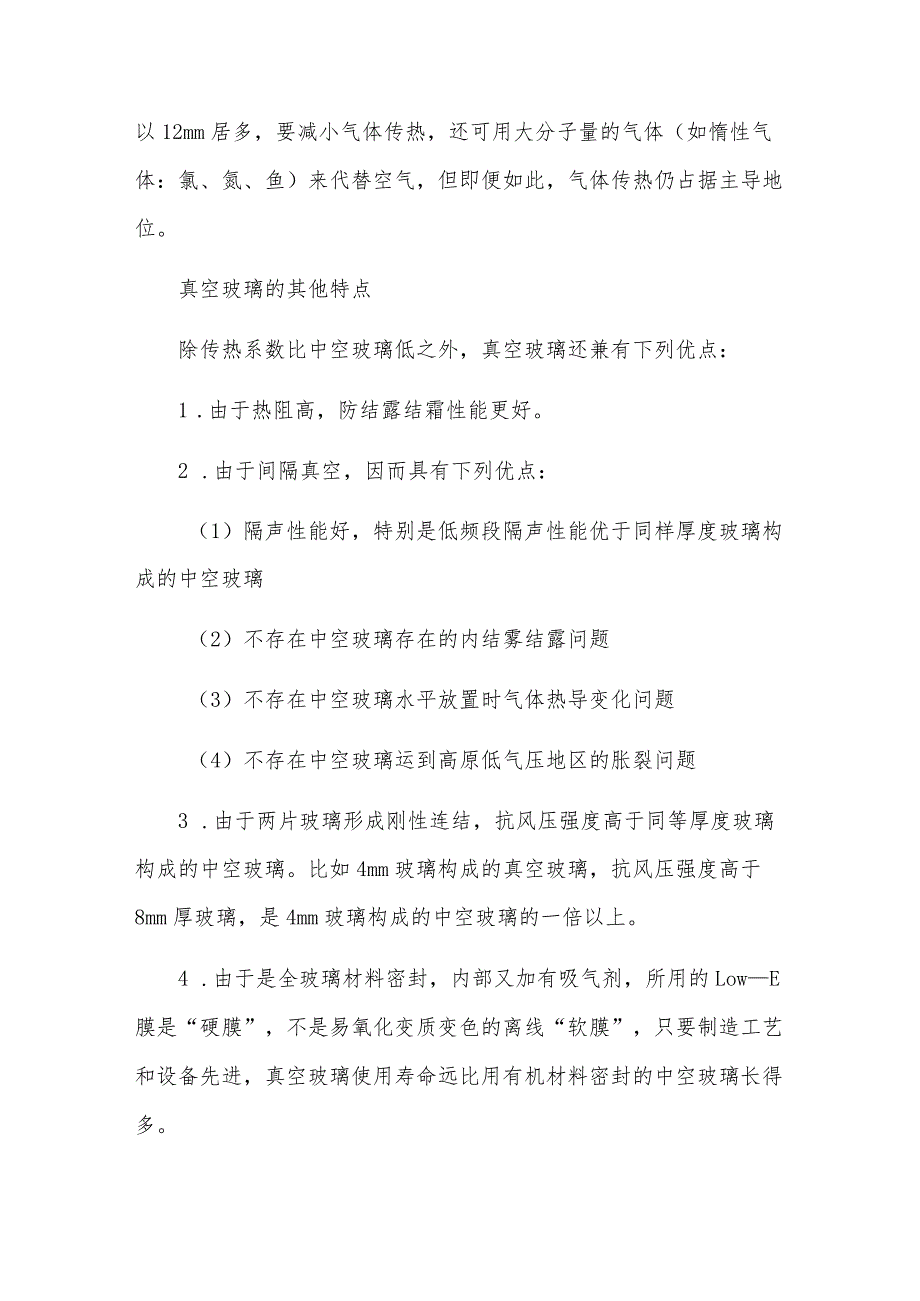 以12mm居多，要减小气体传热，还可用大分子量的气体（如惰性气
体：氯、氮、鱼）来代替空气，但即便如此，气体传热仍占据主导地
位。
真空玻璃的其他特点
除传热系数比中空玻璃低之外，真空玻璃还兼有下列优点：
1 .由于热阻高，防结露结霜性能更好。
2 .由于间隔真空，因而具有下列优点：
（1）隔声性能好，特别是低频段隔声性能优于同样厚度玻璃构
成的中空玻璃
（2）不存在中空玻璃存在的内结雾结露问题
（3）不存在中空玻璃水平放置时气体热导变化问题
（4）不存在中空玻璃运到高原低气压地区的胀裂问题
3 .由于两片玻璃形成刚性连结，抗风压强度高于同等厚度玻璃
构成的中空玻璃。比如4mm玻璃构成的真空玻璃，抗风压强度高于
8mm厚玻璃，是4mm玻璃构成的中空玻璃的一倍以上。
4 .由于是全玻璃材料密封，内部又加有吸气剂，所用的Low—E
膜是“硬膜”，不是易氧化变质变色的离线“软膜”，只要制造工艺
和设备先进，真空玻璃使用寿命远比用有机材料密封的中空玻璃长得
多。